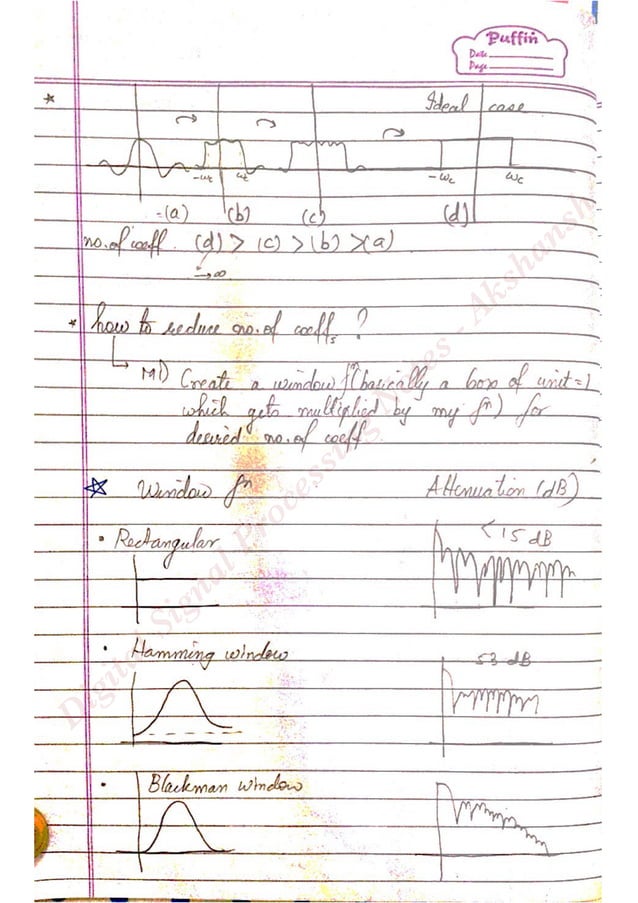 Puffin
Date
Page
* Ideal case
-ωc ωc -ωc ωc
(a) (b) (c) (d)
no. of coeff. (d) > (c) > (b) > (a)
→∞
* how to reduce no. of coeffs ?
M1) Create a window fⁿ (basically a box of unit = 1
which gets multiplied by my fⁿ) for
desired no. of coeff.
☆ Window fⁿ Attenuation (dB)
• Rectangular < 15 dB
• Hamming window 53 dB
• Blackman window
Digital Signal Processing Notes - Akshansh